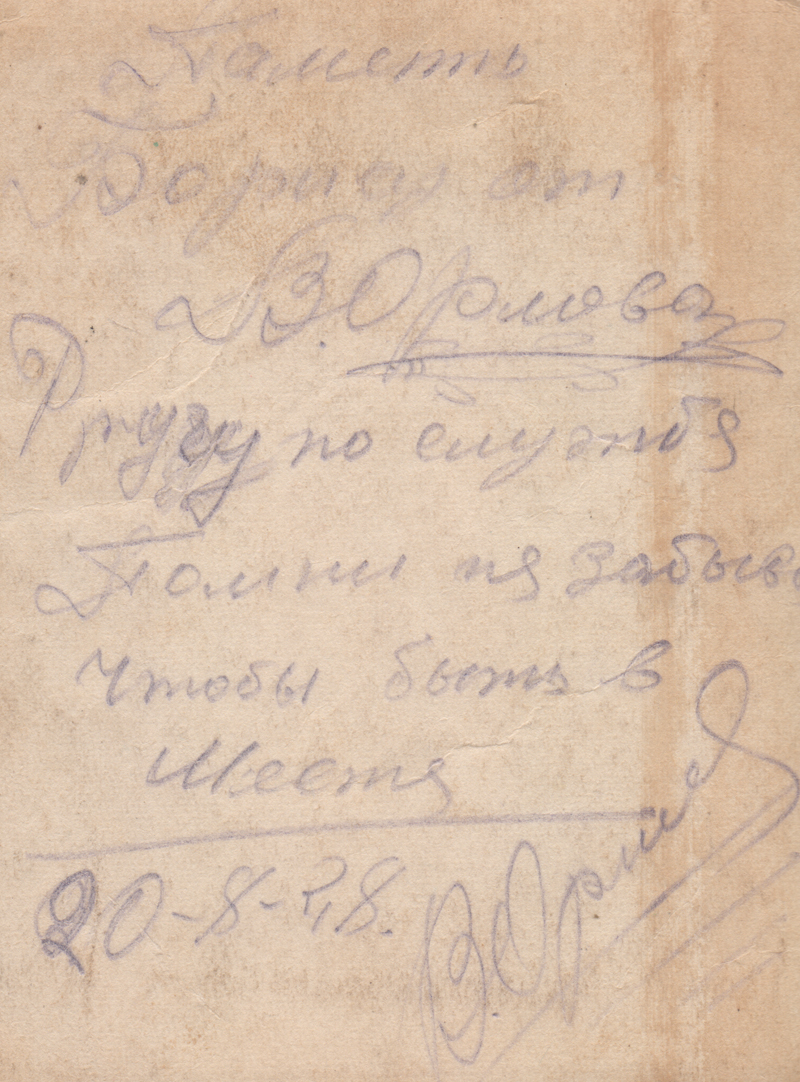 Паметь
Борису от
В. Орлова
другу по службя
Помни ня забыва
Чтобы быть в
Местя
20-8-48.
В. Орлов